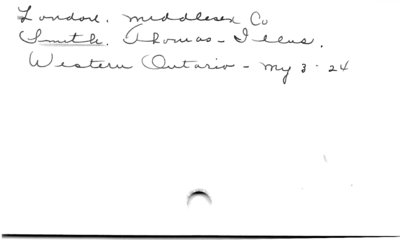 London. Middlesex Co
Smith. Thomas - Illus.
Western Ontario - My 3 - 24